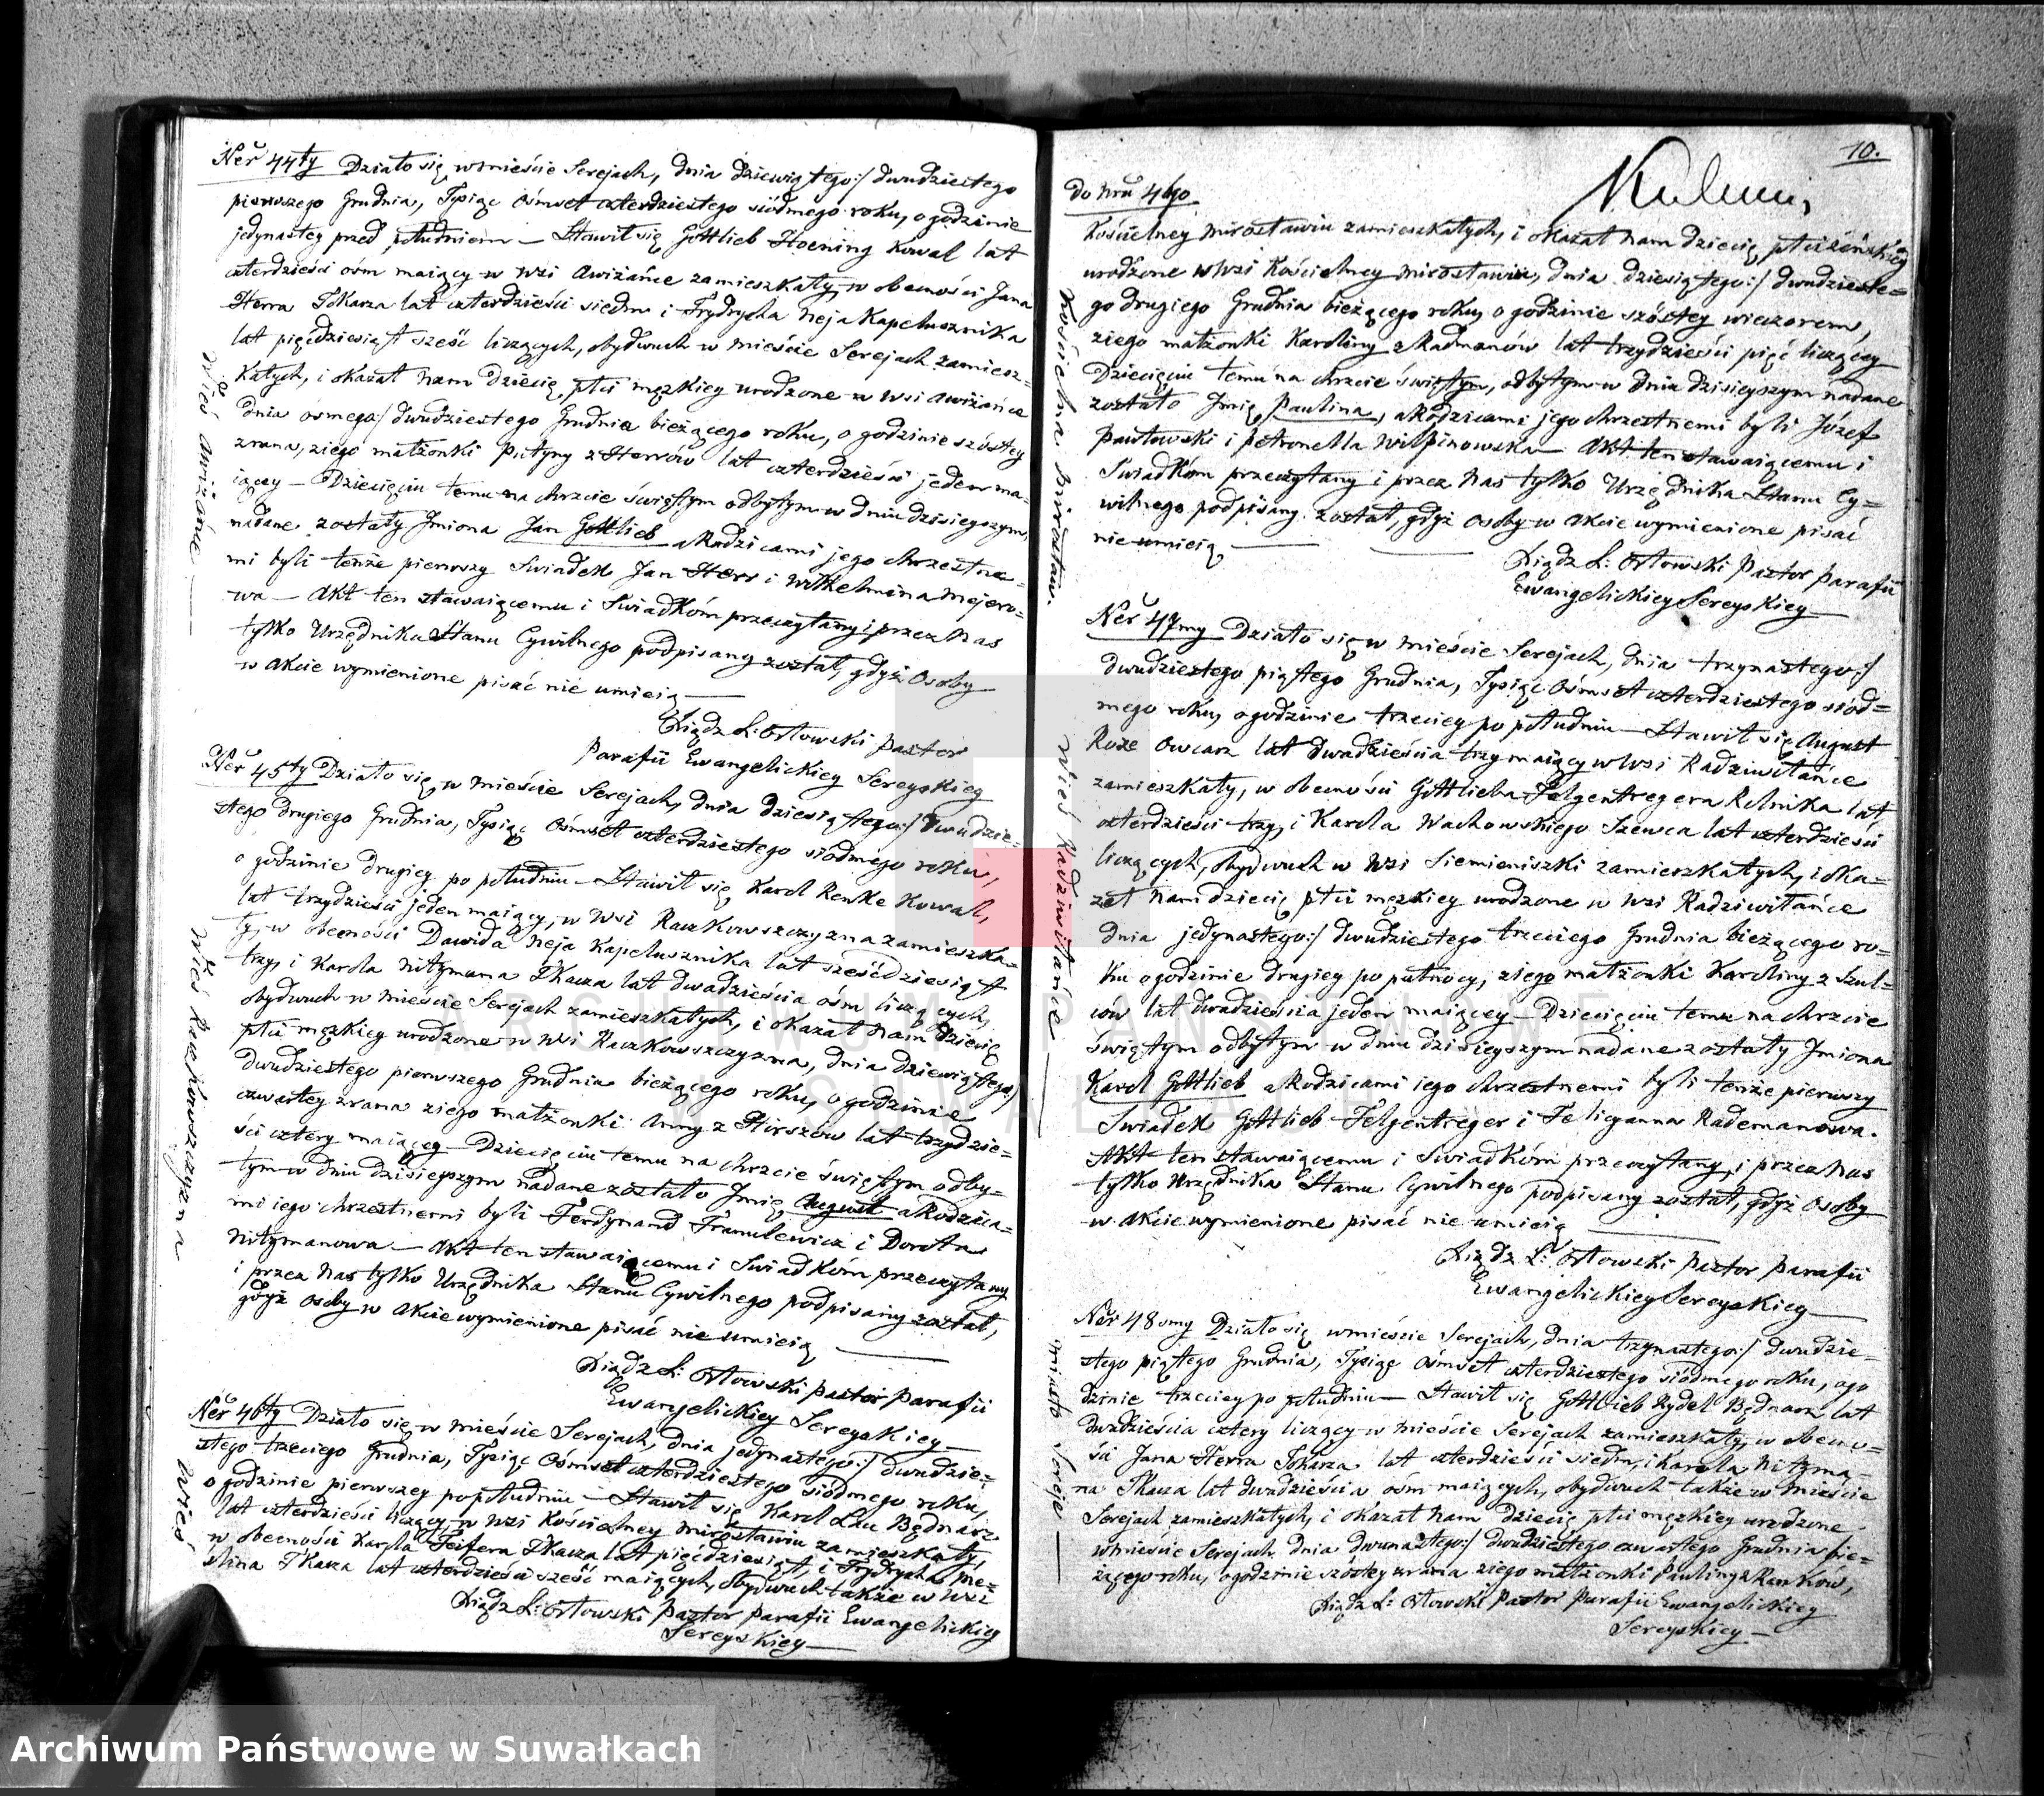 Ner 44ty Działo się w mieście Serejach, dnia dziewiątego:/ dwudziestego
pierwszego Grudnia, Tysiąc Ośmset czterdziestego siódmego roku, o godzinie
jedynastey przed południem — Stawił się Gottlieb Hoening Kowal lat
czterdzieści ośm maiący w wsi Awiżańce zamieszkały, w obecności Jana
Herra Tokarza lat czterdzieści siedm i Frydrycha Neja Kapelusznika
lat pięćdziesiąt sześć liczących, obydwuch w mieście Serejach zamiesz-
kałych, i okazał nam Dziecię płci męzkiey urodzone w wsi Awiżańce
dnia ósmego:/ dwudziestego Grudnia bieżącego roku, o godzinie szóstey
zrana, z iego małżonki Putyny z Herrów lat czterdzieści jeden ma-
iącey — Dziecięciu temu na chrzcie świętym odbytym w dniu dzisieyszym,
nadane zostały Imiona Jan Gottlieb a Rodzicami jego chrzestne-
mi byli tenże pierwszy Swiadek Jan Herr i Wilhelmina Mejero-
wa — Akt ten stawaiącemu i Swiadkóm przeczytany i przez nas
tylko Urzędnika Stanu Cywilnego podpisany został, gdyż Osoby
w akcie wymienione pisać nie umieią —
Xiądz L: Orłowski Pastor
Parafii Ewangelickiey Sereyskiey
Wieś Awiżańce —
Ner 45ty Działo się w mieście Serejach, dnia dziesiątego:/ dwudzie-
stego drugiego Grudnia, Tysiąc Ośmset czterdziestego siódmego roku,
o godzinie drugiey po południu — Stawił się Karol Renke Kowal,
lat trzydzieści jeden maiący, w wsi Raczkowszczyzna zamieszka-
ły, w obecności Dawida Neja Kapelusznika lat sześćdziesiąt
trzy, i Karola Nitzmana Tkacza lat dwadzieścia ośm liczących,
obydwuch w mieście Serejach zamieszkałych, i okazał nam Dziecię
płci męzkiey urodzone w wsi Raczkowszczyzna, dnia dziewiątego:/
dwudziestego pierwszego Grudnia bieżącego roku, o godzinie
czwartey zrana z iego małżonki Anny z Hirszów lat trzydzie-
ści cztery maiącey — Dziecięciu temu na chrzcie świętym odby-
tym w dniu dzisieyszym nadane zostało Imię August a Rodzica-
mi iego chrzestnemi byli Ferdynand Franulewicz i Dorota
Nitzmanowa — Akt ten stawaiącemu i Swiadkóm przeczytany
i przez nas tylko Urzędnika Stanu Cywilnego podpisany został,
gdyż Osoby w Akcie wymienione pisać nie umieią —
Xiądz L: Orłowski Pastor Parafii
Ewangelickiey Sereyskiey —
Wieś Raczkowszczyzna
Ner 46ty Działo się w mieście Serejach, dnia jedynastego:/ dwudzie-
stego trzeciego Grudnia, Tysiąc Ośmset czterdziestego siódmego roku,
o godzinie pierwszey po południu — Stawił się Karol Lau Bednarz
lat czterdzieści liczący w wsi Kościelney Mirosławiu zamieszkały,
w obecności Karola Feifera Tkacza lat pięćdziesiąt, i Frydrycha Me-
slina Tkacza lat czterdzieści sześć maiących, obydwuch także w wsi
Xiądz L: Orłowski Pastor Parafii Ewangelickiey
Sereyskiey —
Wieś
10.
do Nru 46go
Kościelney Mirosławiu zamieszkałych, i okazał nam dziecię płci żeńskiey
urodzone w wsi Kościelney Mirosławiu, dnia dziesiątego:/ dwudzieste-
go drugiego Grudnia bieżącego roku, o godzinie szóstey wieczorem,
z iego małżonki Karoliny z Radmanów lat trzydzieści pięć liczącey
Dziecięciu temu na chrzcie świętym, odbytym w dniu dzisieyszym nadane
zostało Imię Paulina, a Rodzicami jego chrzestnemi byli Józef
Pawłowski i Petronella Wilpinowska — Akt ten stawaiącemu i
Swiadkóm przeczytany i przez nas tylko Urzędnika Stanu Cy-
wilnego podpisany został, gdyż Osoby w Akcie wymienione pisać
nie umieią —
Xiądz L: Orłowski Pastor Parafii
Ewangelickiey Sereyskiey —
Kościelna Mirosław.
Ner 47my Działo się w mieście Serejach, dnia trzynastego:/
dwudziestego piątego Grudnia, Tysiąc Ośmset czterdziestego siód-
mego roku, o godzinie trzeciey po południu — Stawił się August
Roze Owczarz lat dwadzieścia trzy maiący w wsi Radziwiłańce
zamieszkały, w obecności Gottlieba Felgentregera Rolnika lat
czterdzieści trzy, i Karola Wachowskiego Szewca lat czterdzieści
liczących, obydwuch w wsi Siemieniszki zamieszkałych, i oka-
zał nam dziecię płci męzkiey urodzone w wsi Radziwiłańce
dnia jedynastego:/ dwudziestego trzeciego Grudnia bieżącego ro-
ku o godzinie drugiey po północy, z iego małżonki Karoliny z Szul-
ców lat dwadzieścia jeden maiącey — Dziecięciu temu na chrzcie
świętym odbytym w dniu dzisieyszym nadane zostały Imiona
Karol Gottlieb a Rodzicami iego chrzestnemi byli tenże pierwszy
Swiadek Gottlieb Felgentreger i Felicyanna Rademanowa.
Akt ten stawaiącemu i Swiadkóm przeczytany, i przez nas
tylko Urzędnika Stanu Cywilnego podpisany został, gdyż Osoby
w Akcie wymienione pisać nie umieią —
Xiądz L: Orłowski Pastor Parafii
Ewangelickiey Sereyskiey —
Wieś Radziwiłańce —
Ner 48smy Działo się w mieście Serejach, dnia trzynastego:/ dwudzie-
stego piątego Grudnia, Tysiąc Ośmset czterdziestego siódmego roku, o go
dzinie trzeciey po południu — Stawił się Gottlieb Rydel Bednarz lat
dwadzieścia cztery liczący w mieście Serejach zamieszkały, w obecno-
ści Jana Herra Tokarza lat czterdzieści siedm, i Karola Nitzma-
na Tkacza lat dwadzieścia ośm maiących, obydwuch także w mieście
Serejach zamieszkałych, i okazał nam dziecię płci męzkiey urodzone
w mieście Serejach dnia dwunastego:/ dwudziestego czwartego Grudnia bie-
żącego roku, o godzinie szóstey zrana z iego małżonki Pauliny z Rankow,
Xiądz L: Orłowski Pastor Parafii Ewangelickiey
Sereyskiey —
Miasto Sereje —
ARCHIWUM PAŃSTWOWE
W SUWAŁKACH
Archiwum Państwowe w Suwałkach